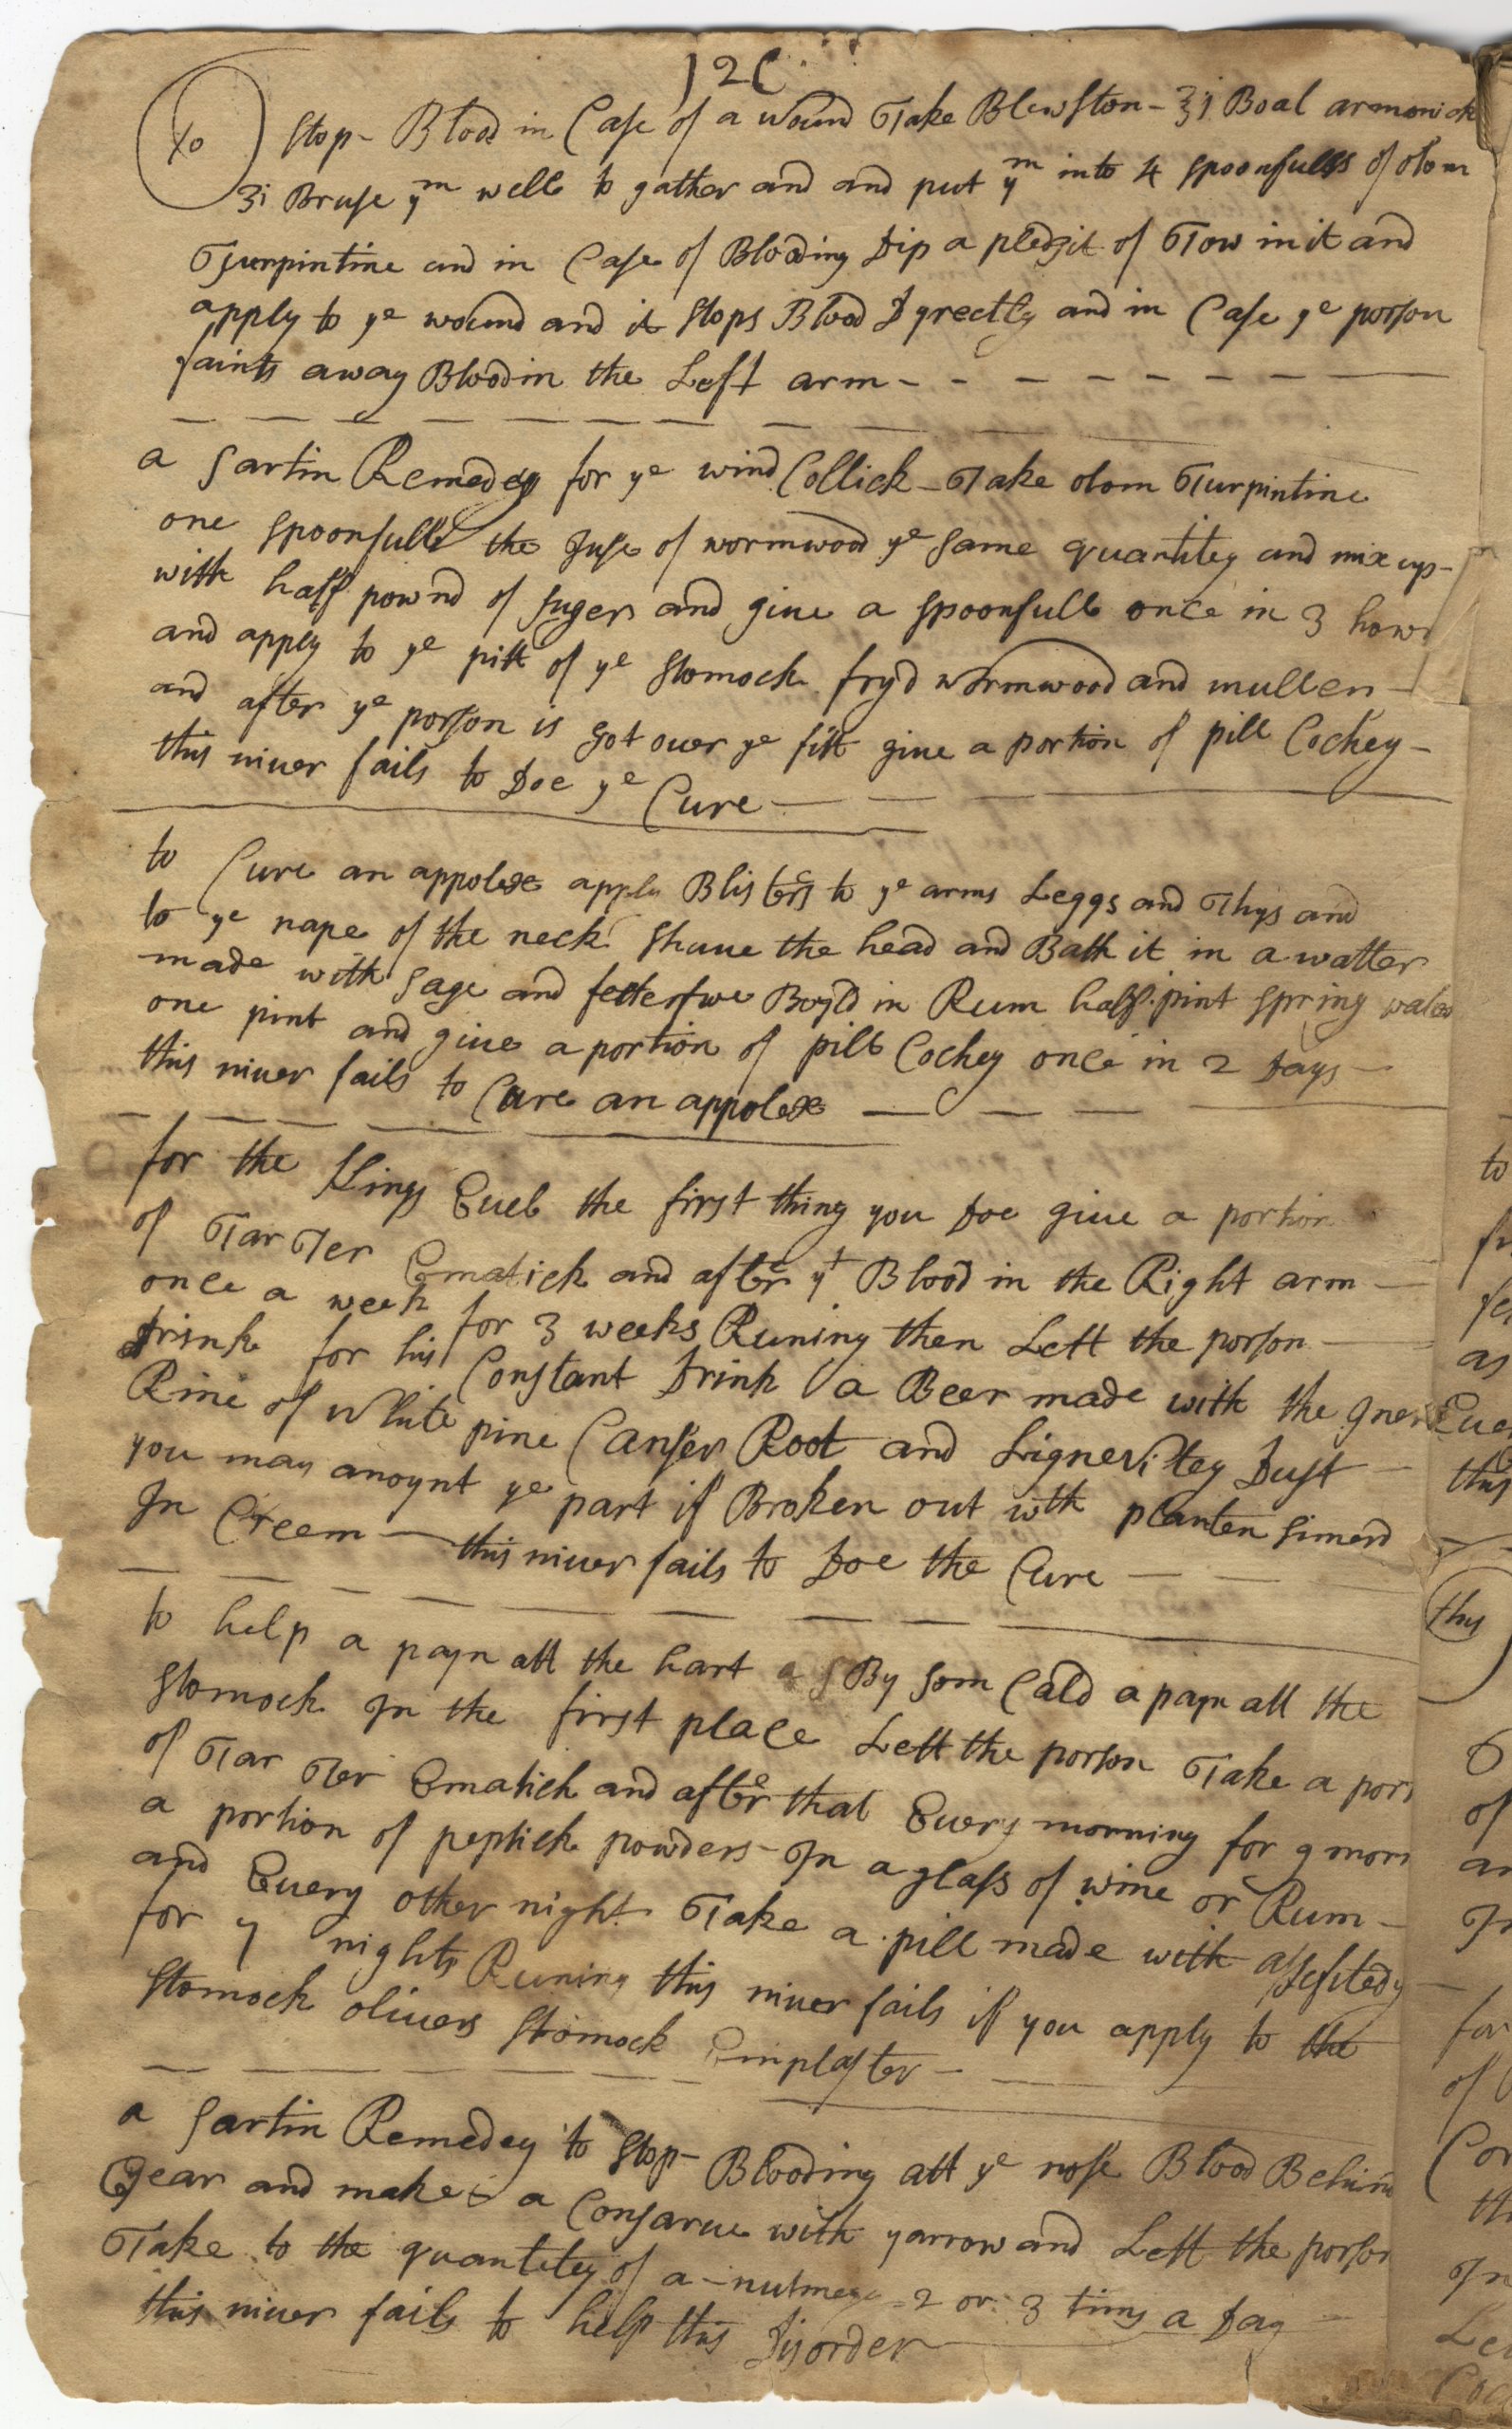 12
To Stop- Blood in Case of a wound Take Blewston - ʒi Boal armonick
ʒi Bruse ym well to gather and and put ym into 4 spoonfulls of olom
Turpintine and in Case of Blooding Dip a pledgit of Tow in it and
apply to ye wound and it stops Blood Dyrectly and in Case ye porson
faints away Blood in the Left arm - - - - - - - -
a Sartin Remedey for ye wind Collick - Take olom Turpintine
one spoonfull the Juse of wormwood ye same quantitey and mix up -
with half pownd of suger and giue a spoonfull once in 3 howr
and apply to ye pitt of ye stomock fryd wormwood and mullen -
and after ye porson is got ouer ye fitt giue a portion of pill Cochey -
this niuer fails to Doe ye Cure -
to Cure an appolex apply Blisters to ye arms Leggs and Thys and
to ye nape of the neck Shaue the head and Bath it in a watter
made with sage and fetterfue Boyld in Rum half pint spring water
one pint and giue a portion of pill Cochey once in 2 Days -
this niuer fails to Cure an appolex -
for the Kings Euel the first thing you Doe giue a portion
of Tar Ter Ematick and after yt Blood in the Right arm -
once a week for 3 weeks Runing then Lett the porson -
Drink for his Constant Drink a Beer made with the
Rine of white pine Canser Root and Lignevitey Dust
you may anoynt ye part if Broken out wth planten simerd
In Creem - this niuer fails to Doe the Cure -
to help a payn att the hart By som Cald a payn att the
stomock In the first place Lett the porson Take a porti
of Tar Ter Ematick and after that Euery morning for 9 morn
a portion of peptick powders - In a glass of wine or Rum -
and Euery other night Take a pill made with assefitedy
for 7 nights Runing this niuer fails if you apply to the
stomock oliuers stomock Emplaster -
a Sartin Remedey to Stop- Blooding att ye nose Blood Behind
ye ear and make a Consarue with yarrow and Lett the porson
Take to the quantitey of a - nutmeg - 2 or 3 tims a Day
this niuer fails to help this Disorder